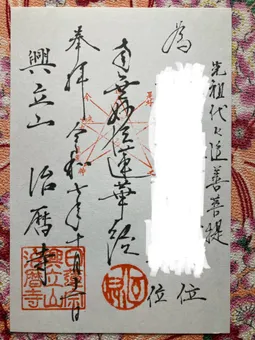 先祖代々追善菩提
為
位
位
南無妙法蓮華経
奉拝 令和七年十月 日
興立山 治暦寺
日蓮宗
興立山
治暦寺